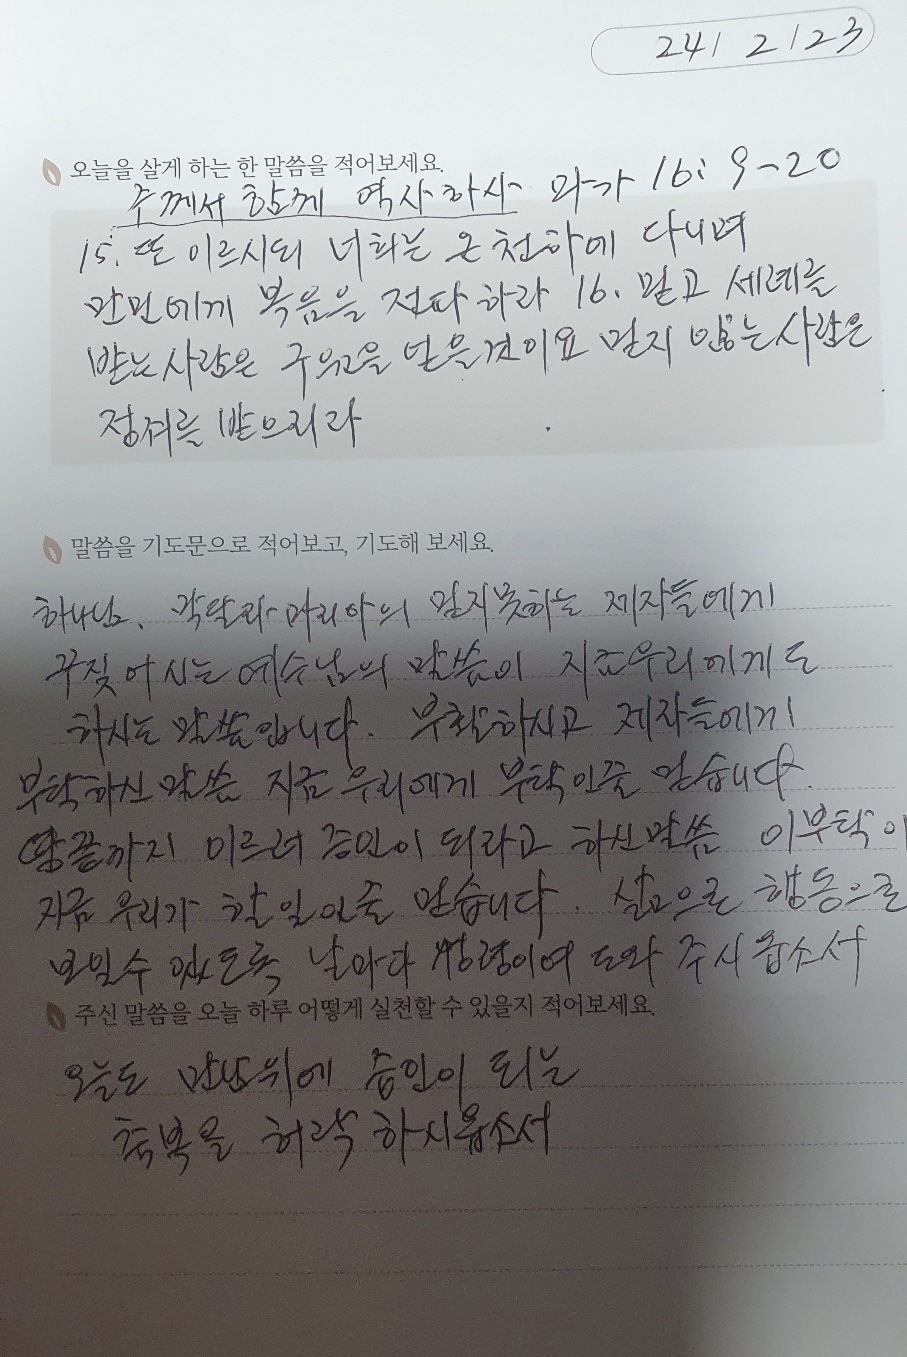 24/ 2/23
오늘을 살게 하는 한 말씀을 적어보세요.
주께서 함께 역사하사 마가 16: 9-20
15. 또 이르시되 너희는 온 천하에 다니며
만민에게 복음을 전파하라 16. 믿고 세례를
받는 사람은 구원을 얻을것이요 믿지 않는 사람은
정죄를 받으리라
말씀을 기도문으로 적어보고, 기도해 보세요.
하나님, 막달라 마리아의 믿지못하는 제자들에게
꾸짖어시는 예수님의 말씀이 지금우리에게도
하시는 말씀입니다. 부활하시고 제자들에게
부탁하신 말씀 지금 우리에게 부탁인줄 믿습니다.
땅끝까지 이르러 증인이 되라고 하신말씀 이부탁이
지금 우리가 할 일인줄 믿습니다. 삶으로 행동으로
보일수 있도록 날마다 성령이여 도와 주시옵소서
주신 말씀을 오늘 하루 어떻게 실천할 수 있을지 적어보세요.
오늘도 말씀위에 증인이 되는
축복을 허락 하시옵소서